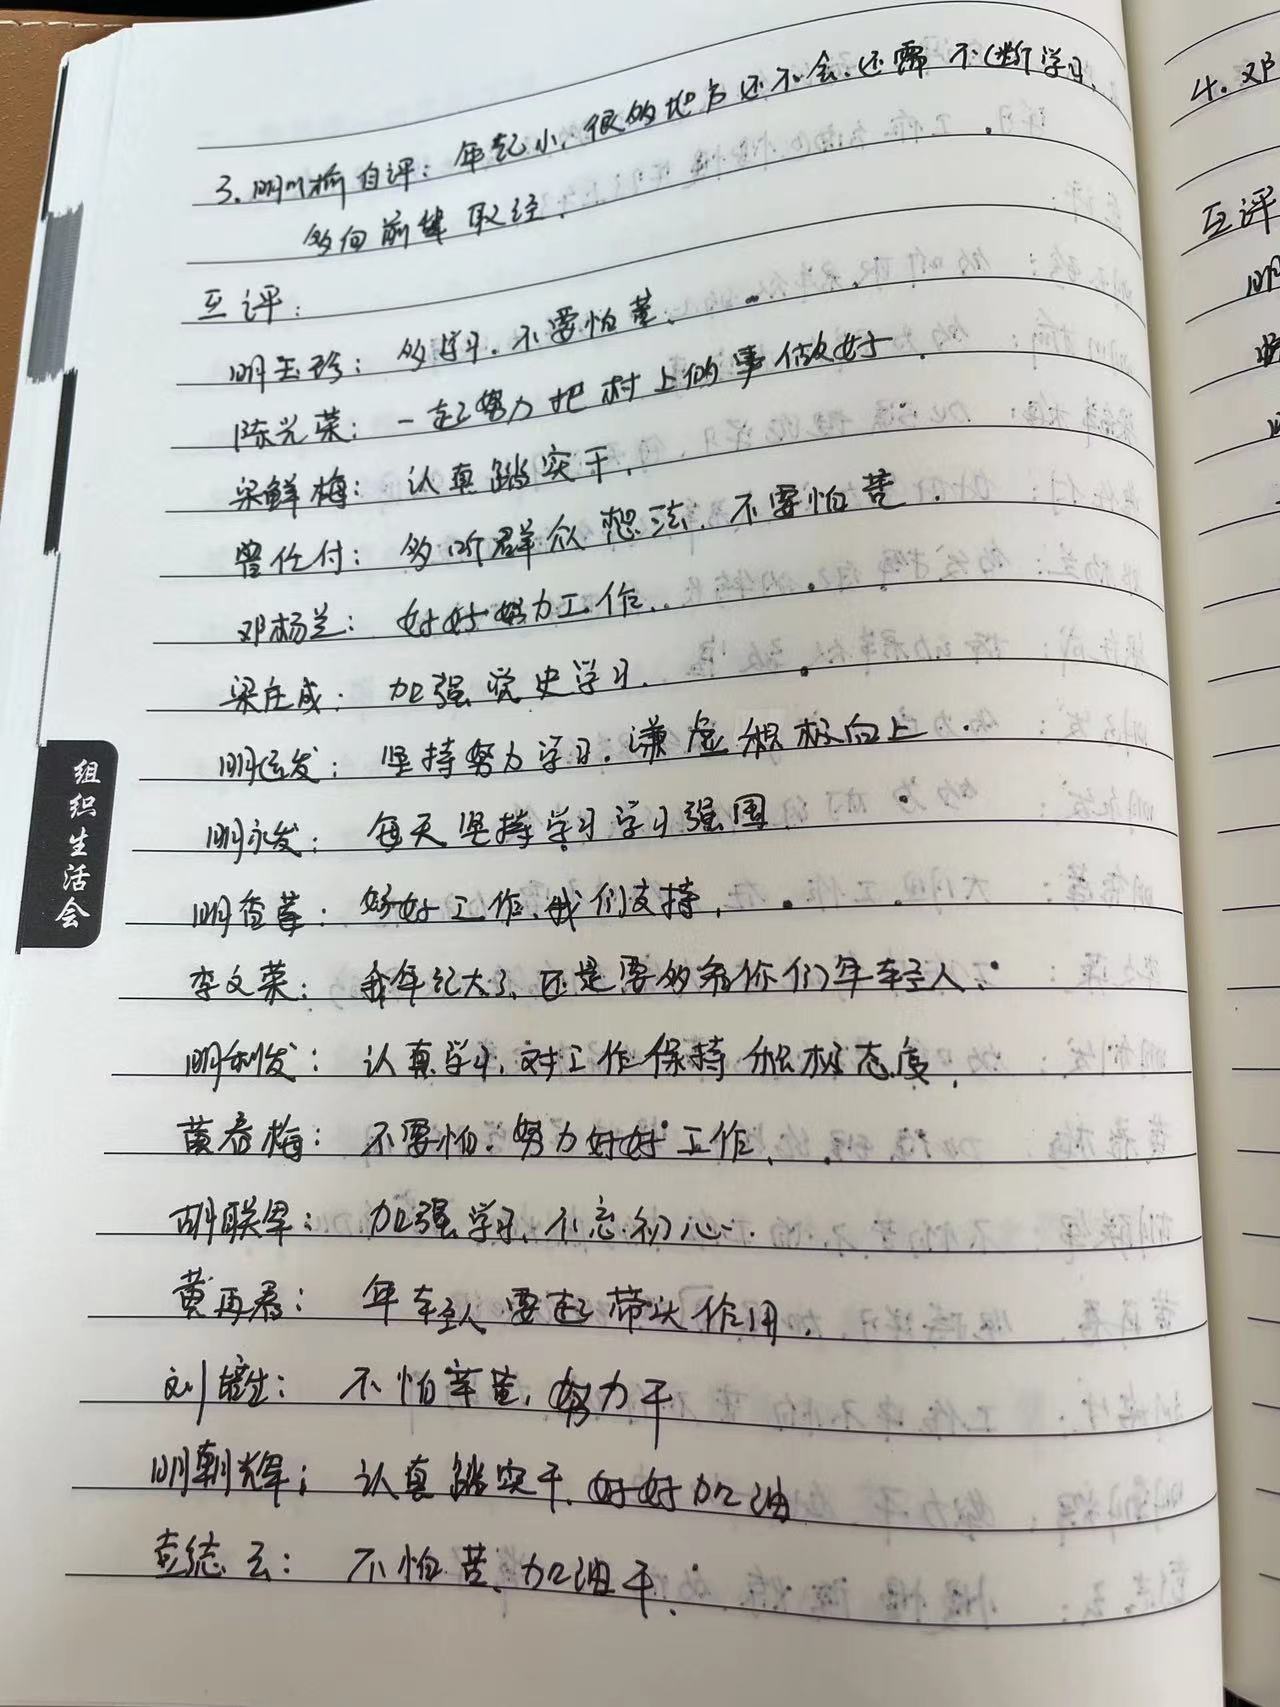 3.明川榆自评：年纪小，很多地方还不会，还需不断学习，
多向前辈取经。
互评：
明玉珍：多学习，不要怕苦。
陈光荣：一起努力把村上的事做好。
梁鲜梅：认真踏实干。
曾仕付：多听群众想法，不要怕苦。
邓杨兰：好好努力工作。
梁庄成：加强党史学习。
明远发：坚持努力学习，谦虚积极向上。
明永发：每天坚持学习学习强国。
明香莲：好好工作，我们支持。
李文荣：我年纪大了，还是要多看你们年轻人。
明利发：认真学习，对工作保持积极态度。
黄春梅：不要怕，努力好好工作。
胡联军：加强学习，不忘初心。
黄再春：年轻人要起带头作用。
刘培生：不怕辛苦，努力干
明朝辉：认真踏实干，好好加油
袁德云：不怕苦，加油干。
组织生活会
4.邓
互评
明
明